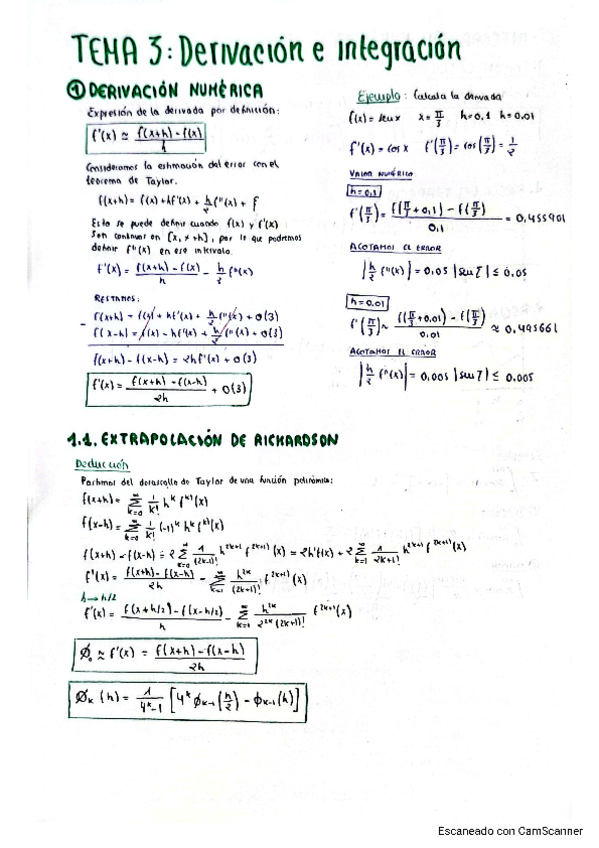 TEMA 3: Derivación e integración
① DERIVACIÓN NUMÉRICA
Expresión de la derivada por definición:
f'(x) ≈ (f(x+h) - f(x)) / h
Consideramos la estimación del error con el
teorema de Taylor.
f(x+h) = f(x) + hf'(x) + h/2 f''(x) + f
Esto se puede definir cuando f(x) y f'(x)
son continuas en [x, x+h], por lo que podemos
definir f''(x) en ese intervalo.
f'(x) = (f(x+h) - f(x)) / h - h/2 f''(x)
RESTAMOS:
f(x+h) = f(x) + hf'(x) + h/2 f''(x) + O(3)
- f(x-h) = f(x) - hf'(x) + h/2 f''(x) + O(3)
f(x+h) - f(x-h) = 2hf'(x) + O(3)
f'(x) = (f(x+h) - f(x-h)) / 2h + O(3)
Ejemplo: Calcula la derivada
f(x) = sen x x = π/3 h=0,1 h=0.01
f'(x) = cos x f'(π/3) = cos(π/3) = 1/2
VALOR NUMÉRICO
h=0,1
f'(π/3) = (f(π/3 + 0,1) - f(π/3)) / 0,1 = 0,455901
ACOTAMOS EL ERROR
|h/2 f''(x)| = 0,05 |sen ζ| ≤ 0,05
h=0.01
f'(π/3) ≈ (f(π/3 + 0.01) - f(π/3)) / 0.01 ≈ 0,495661
ACOTAMOS EL ERROR
|h/2 f''(x)| = 0,005 |sen ζ| ≤ 0.005
1.1. EXTRAPOLACIÓN DE RICKARDSON
Deducción
Partimos del desarrollo de Taylor de una función polinómica:
f(x+h) = ∑ k=0 ∞ 1/k! h^k f^(k)(x)
f(x-h) = ∑ k=0 ∞ 1/k! (-1)^k h^k f^(k)(x)
f(x+h) - f(x-h) = 2 ∑ k=0 ∞ 1/(2k+1)! h^(2k+1) f^(2k+1)(x) = 2hf'(x) + 2 ∑ k=1 ∞ 1/2k+1! h^(2k+1) f^(2k+1)(x)
f'(x) = (f(x+h) - f(x-h)) / 2h - ∑ k=1 ∞ h^2k/(2k+1)! f^(2k+1)(x)
h → h/2
f'(x) = (f(x+h/2) - f(x-h/2)) / h - ∑ k=1 ∞ h^2k / 2^2k (2k+1)! f^(2k+1)(x)
ϕ₀ ≈ f'(x) = (f(x+h) - f(x-h)) / 2h
ϕₖ(h) = 1/(4^k - 1) [4^k ϕₖ₋₁(h/2) - ϕₖ₋₁(h)]
Escaneado con CamScanner